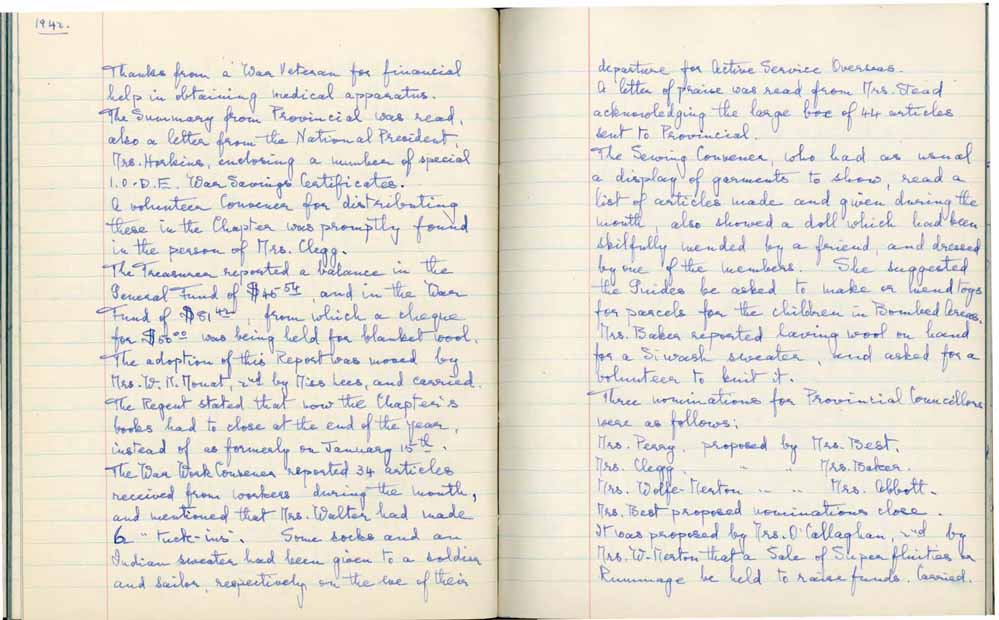 1942.
Thanks from a War Veteran for financial
help in obtaining medical apparatus.
The Summary from Provincial was read,
also a letter from the National President,
Mrs. Horkins, enclosing a number of special
I.O.D.E. War Savings Certificates.
A volunteer Convener for distributing
these in the Chapter was promptly found
in the person of Mrs. Clegg.
The Treasurer reported a balance in the
General Fund of $45 54, and in the War
Fund of $81 42, from which a cheque
for $50 00 was being held for blanket wool.
The adoption of this Report was moved by
Mrs. W. M. Mouat, 2nd by Miss Lees, and carried.
The Regent stated that now the Chapter's
books had to close at the end of the year,
instead of as formerly on January 15th.
The War Work Convener reported 34 articles
received from workers during the month,
and mentioned that Mrs. Walter had made
6 "tuck-ins". Some socks and an
Indian sweater had been given to a soldier
and sailor, respectively on the eve of their
departure for Active Service Overseas.
A letter of praise was read from Mrs. Stead
acknowledging the large box of 44 articles
sent to Provincial.
The Sewing Convener, who had as usual
a display of garments to show, read a
list of articles made and given during the
month, also showed a doll which had been
skilfully mended by a friend, and dressed
by one of the members. She suggested
the Guides be asked to make or mend toys
for parcels for the children in Bombed Areas.
Mrs. Baker reported having wool on hand
for a Siwash sweater, and asked for a
volunteer to knit it.
Three nominations for Provincial Councillors
were as follows:
Mrs. Perry. proposed by Mrs. Best.
Mrs. Clegg. " " Mrs. Baker.
Mrs. Wolfe-Merton " " Mrs. Abbott.
Mrs. Best proposed nominations close.
It was proposed by Mrs. O'Callaghan, 2nd by
Mrs. W. Merton that a Sale of Superfluities or
Rummage be held to raise funds. Carried.